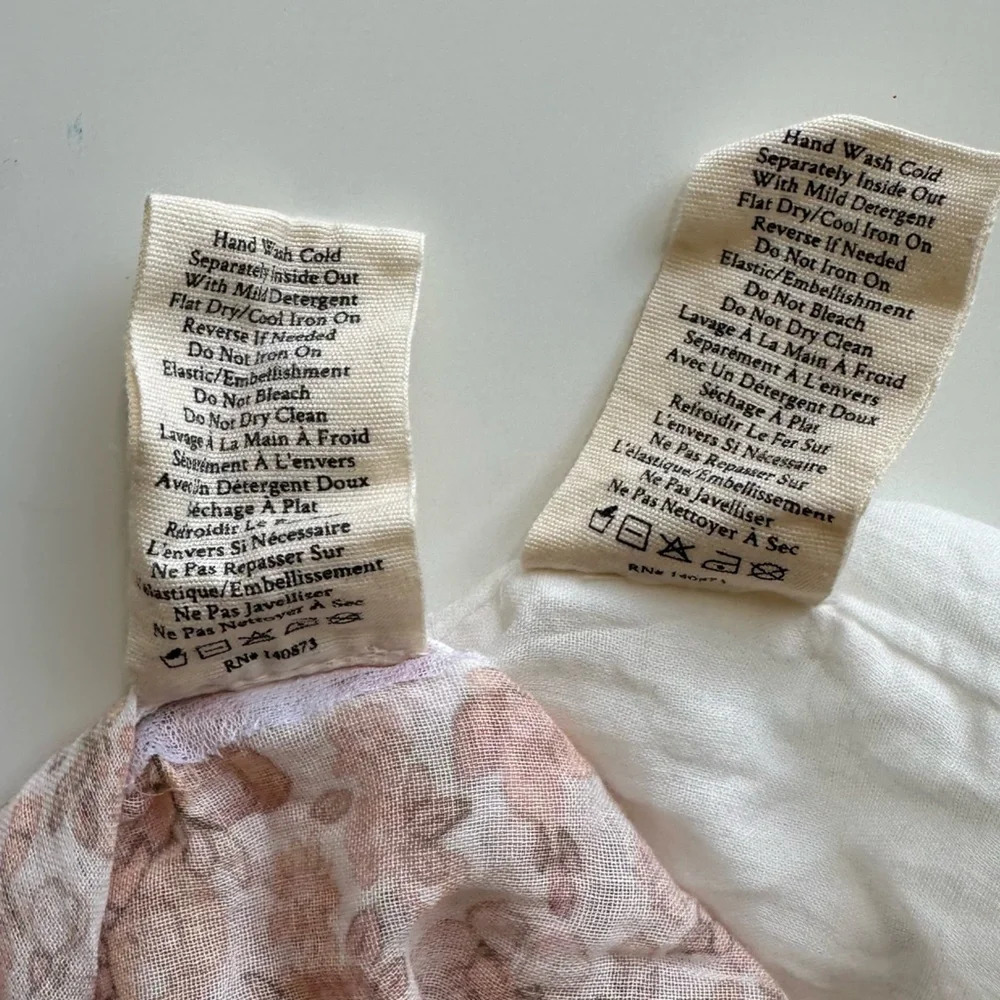 Hand Wash Cold
Separately Inside Out
With Mild Detergent
Flat Dry/Cool Iron On
Reverse If Needed
Do Not Iron On
Elastic/Embellishment
Do Not Bleach
Do Not Dry Clean
Lavage À La Main À Froid
Séparément À L'envers
Avec Un Détergent Doux
Séchage À Plat
Refroidir Le
L'envers Si Nécessaire
Ne Pas Repasser Sur
L'élastique/Embellissement
Ne Pas Javelliser
Ne Pas Nettoyer À Sec
RN# 140873
Hand Wash Cold
Separately Inside Out
With Mild Detergent
Flat Dry/Cool Iron On
Reverse If Needed
Do Not Iron On
Elastic/Embellishment
Do Not Bleach
Do Not Dry Clean
Lavage À La Main À Froid
Séparément À L'envers
Avec Un Détergent Doux
Séchage À Plat
Refroidir Le Fer Sur
L'envers Si Nécessaire
Ne Pas Repasser Sur
L'élastique/Embellissement
Ne Pas Javelliser
Ne Pas Nettoyer À Sec
RN#